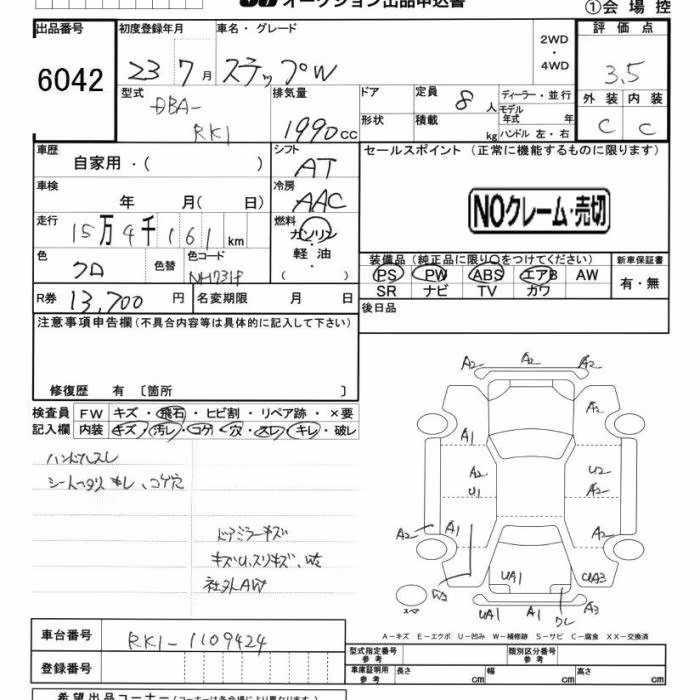 オークション出品申込書
①会場控
出品番号
6042
初度登録年月
23 7月
車名・グレード
ステップW
2WD
・
4WD
評価点
3.5
外装 内装
C C
型式
DBA-
RK1
排気量
1990cc
ドア
定員 8人
ディーラー・並行
モデル
年式 年
形状
積載 kg
ハンドル 左・右
車歴
自家用・( )
シフト
AT
セールスポイント (正常に機能するものに限ります)
NOクレーム・売切
車検
年 月( 日)
冷房
AAC
走行
15万4千161km
燃料
ガソリン
軽油
・
( )
色
クロ
色替
色コード
NH731P
装備品(純正品に限り○をつけてください)
新車保証書
PS PW ABS エアB AW
SR ナビ TV カワ
有・無
R券 13,700円
名変期限 月 日
後日品
注意事項申告欄(不具合内容等は具体的に記入して下さい)
修復歴 有 〔箇所 〕
検査員 FW キズ・飛石・ヒビ割・リペア跡・×要
記入欄 内装 キズ・汚レ・コゲ・穴・スレ・キレ・破レ
ハンドルスレ
シートヘタリ キレ、コゲ穴
ドアミラーキズ
キズU、スリキズ、
社外AW
A2 A2 A2
A2
A1
A2 U2
U1 A2
A2 A1 A2
W3 UA1 CUA3
スペア UA1 A1 ワレ A3
A-キズ E-エクボ U-凹み W-補修跡 S-サビ C-腐食 XX-交換済
車台番号 RK1-1109424
登録番号
型式指定番号
参考
類別区分番号
参考
車庫証明用
参考
長さ cm 幅 cm 高さ cm
希望出品コーナー(コーナーは各会場により異なります)